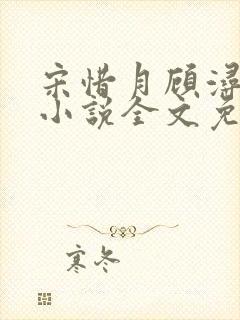 宋惜月顾浔
小说全文免
寒冬